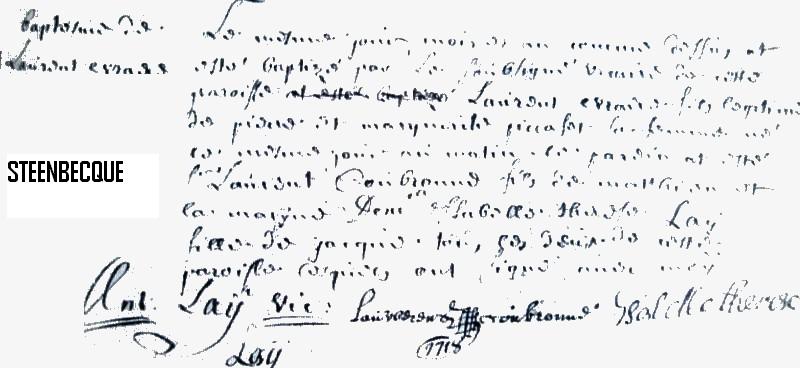 baptesme de
Laurent evrard
Le mesme jour mois et an comme dessus at
esté baptizé par le soubsigné vicaire de cette
paroisse at esté baptizé Laurent evrard fils legitime
de pierre et marguerite piccafet sa femme né
ce mesme jour au matin le parin at esté
Laurent Coubronne fils de mathieu et
la marine Isabelle therese Lay
fille de jacque ses deux de cette
paroisse lesquels ont signé avec moy
STEENBECQUE
Ant. Laÿ vic:
coubronne
Isabelle therese
Laÿ
1718